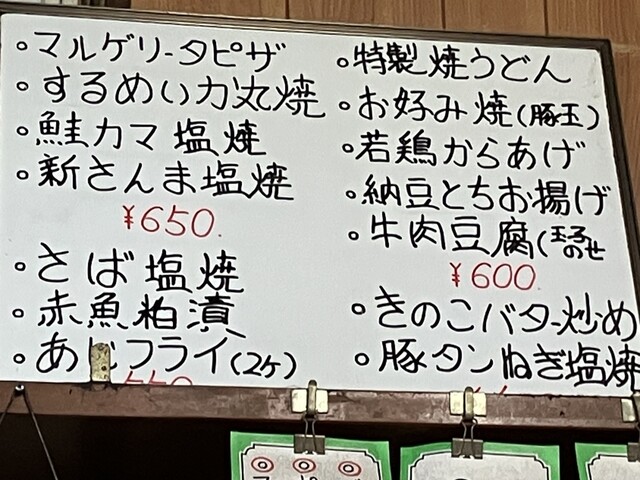 。マルゲリータピザ
。するめいか丸焼
。鮭カマ塩焼
。新さんま塩焼
¥650.
。さば塩焼
。赤魚粕漬
。あじフライ(2ケ)
。特製焼うどん
。お好み焼(豚玉)
。若鶏からあげ
。納豆とちお揚げ
。牛肉豆腐(玉子のせ
¥600.
。きのこバター炒め
。豚タンねぎ塩焼